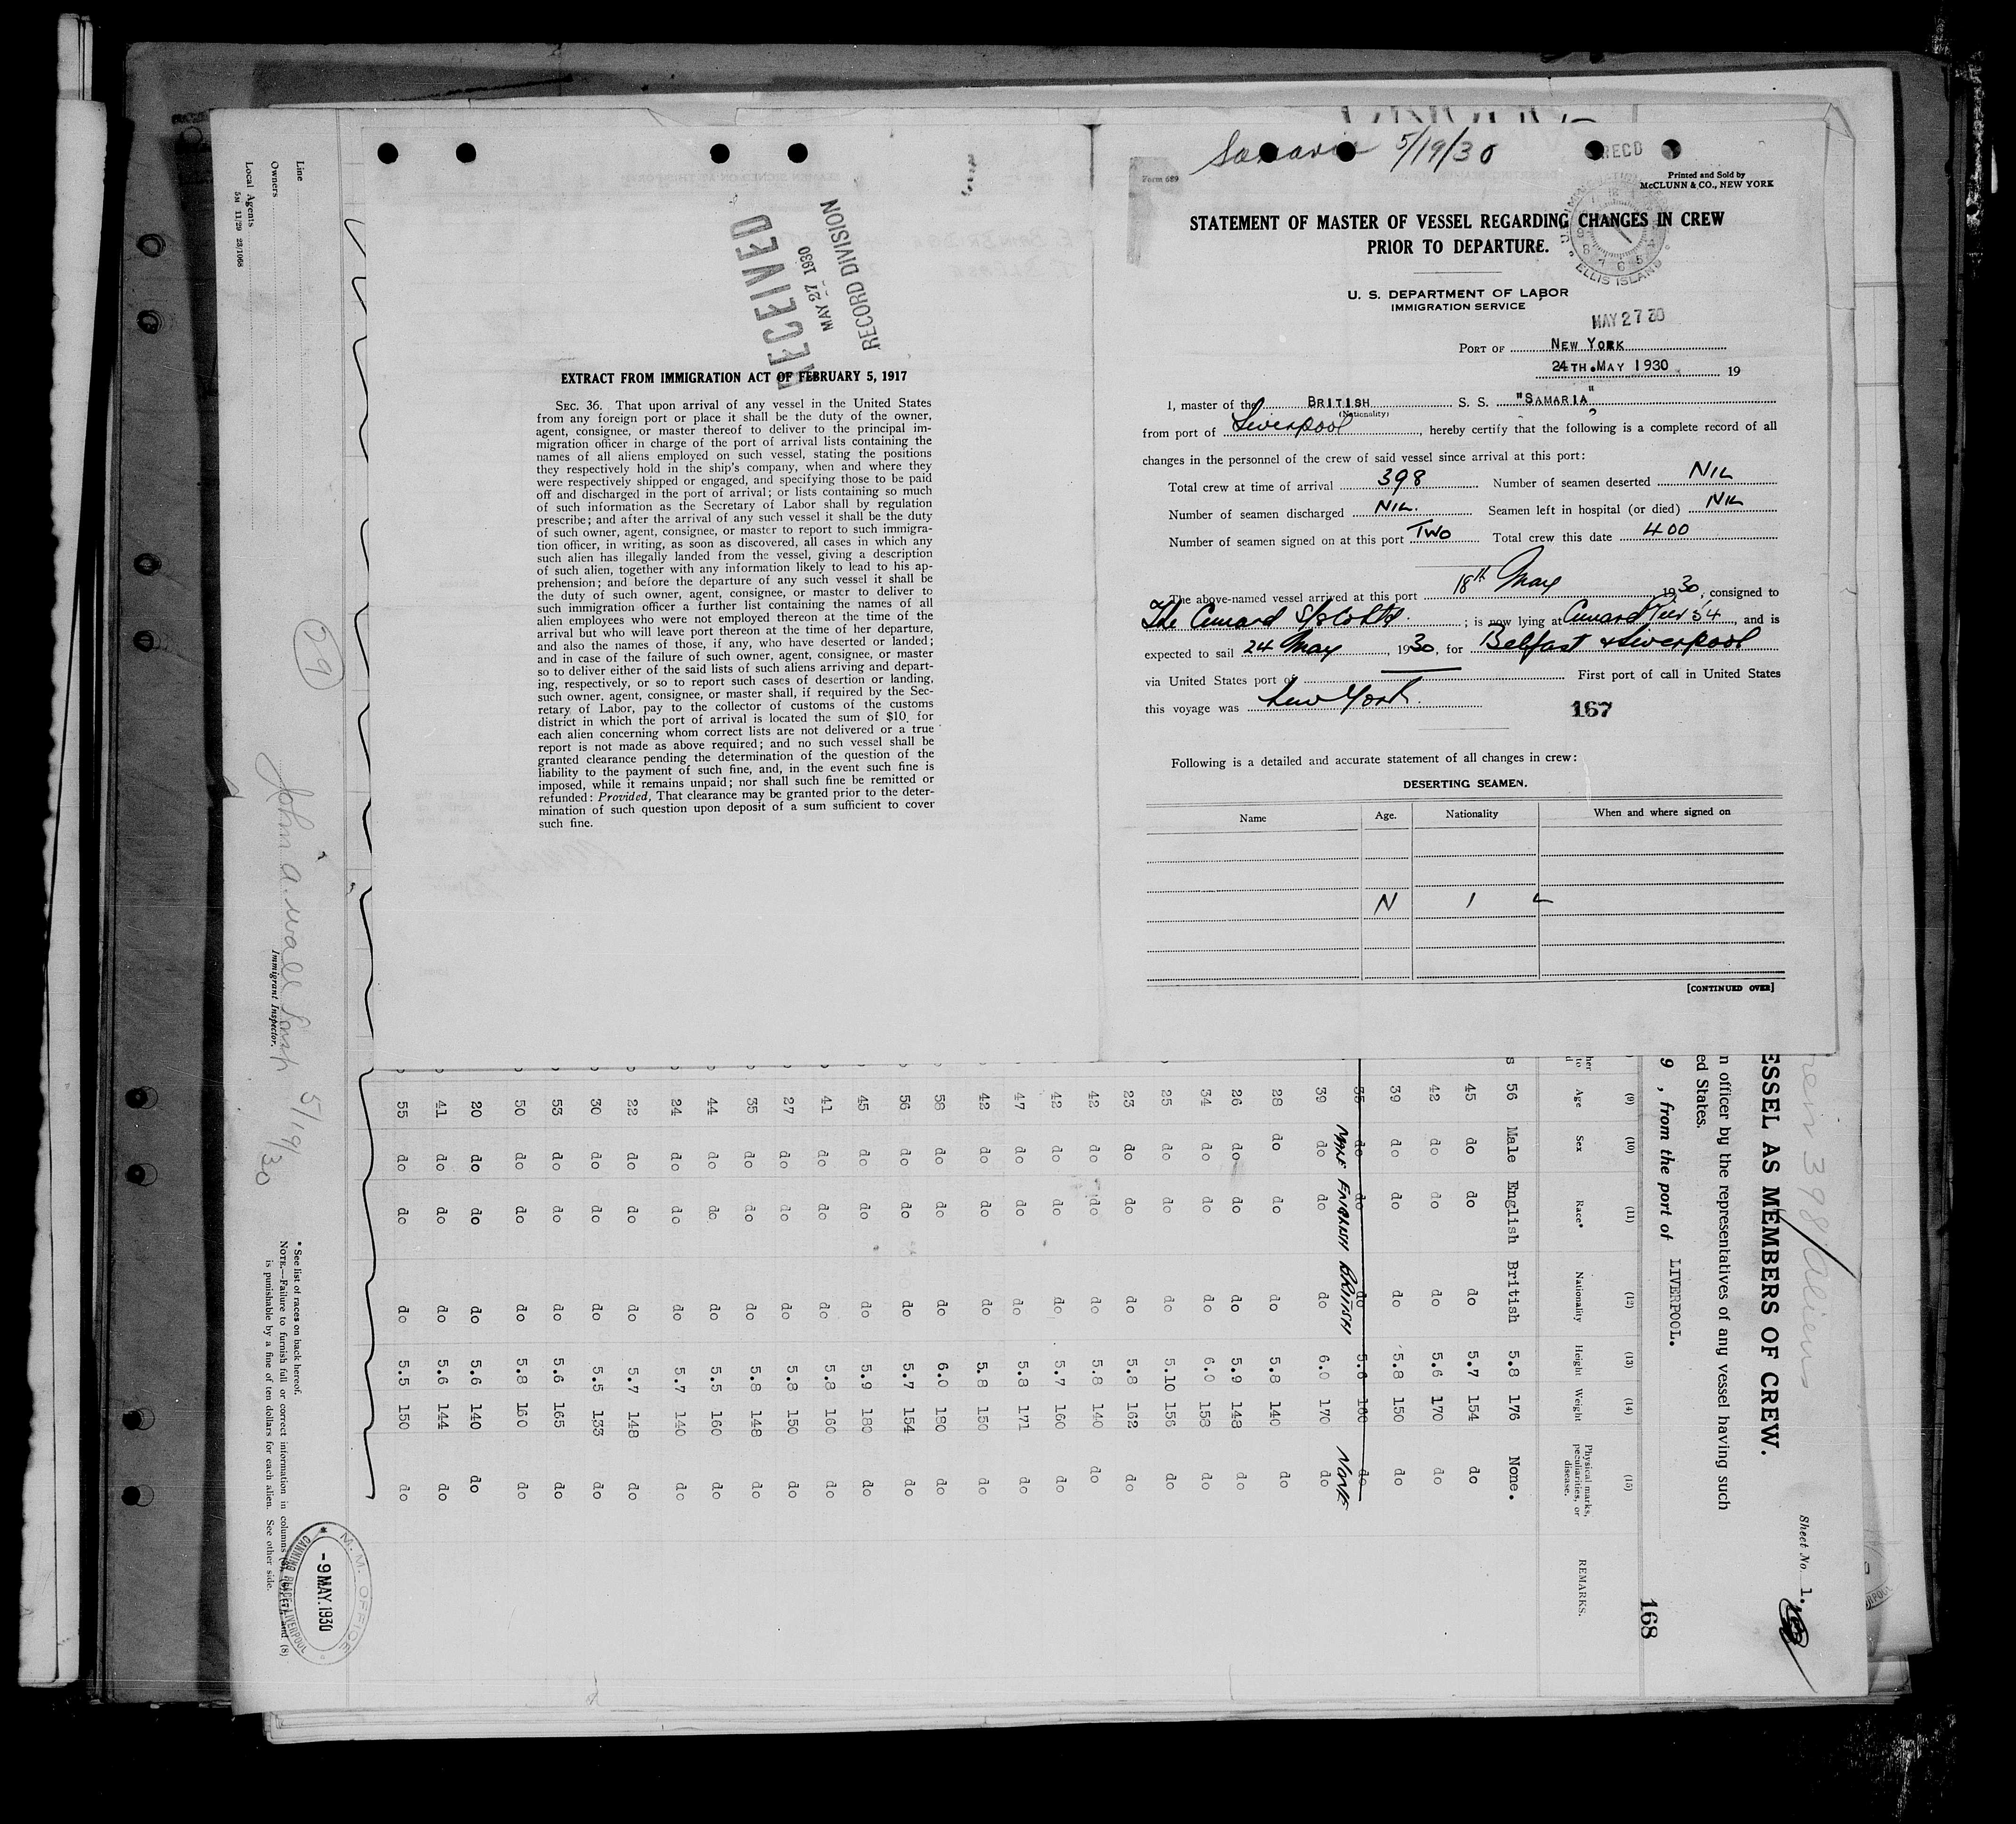 Line
Owners
Local Agents
5M 11/29 23/1068
29
John A. Wall Insp 5/19/30
Immigrant Inspector.
* See list of races on back hereof.
NOTE.—Failure to furnish full or correct information in columns
is punishable by a fine of ten dollars for each alien. See other side.
M. M. OFFICE
-9 MAY.1930
CANNING PLACE LIVERPOOL
RECEIVED
MAY 27 1930
RECORD DIVISION
EXTRACT FROM IMMIGRATION ACT OF FEBRUARY 5, 1917
SEC. 36. That upon arrival of any vessel in the United States
from any foreign port or place it shall be the duty of the owner,
agent, consignee, or master thereof to deliver to the principal im-
migration officer in charge of the port of arrival lists containing the
names of all aliens employed on such vessel, stating the positions
they respectively hold in the ship's company, when and where they
were respectively shipped or engaged, and specifying those to be paid
off and discharged in the port of arrival; or lists containing so much
of such information as the Secretary of Labor shall by regulation
prescribe; and after the arrival of any such vessel it shall be the duty
of such owner, agent, consignee, or master to report to such immigra-
tion officer, in writing, as soon as discovered, all cases in which any
such alien has illegally landed from the vessel, giving a description
of such alien, together with any information likely to lead to his ap-
prehension; and before the departure of any such vessel it shall be
the duty of such owner, agent, consignee, or master to deliver to
such immigration officer a further list containing the names of all
alien employees who were not employed thereon at the time of the
arrival but who will leave port thereon at the time of her departure,
and also the names of those, if any, who have deserted or landed;
and in case of the failure of such owner, agent, consignee, or master
so to deliver either of the said lists of such aliens arriving and depart-
ing, respectively, or so to report such cases of desertion or landing,
such owner, agent, consignee, or master shall, if required by the Sec-
retary of Labor, pay to the collector of customs of the customs
district in which the port of arrival is located the sum of $10. for
each alien concerning whom correct lists are not delivered or a true
report is not made as above required; and no such vessel shall be
granted clearance pending the determination of the question of the
liability to the payment of such fine, and, in the event such fine is
imposed, while it remains unpaid; nor shall such fine be remitted or
refunded: Provided, That clearance may be granted prior to the deter-
mination of such question upon deposit of a sum sufficient to cover
such fine.
Samaria 5/19/30
RECD
Form 689
Printed and Sold by
McCLUNN & CO., NEW YORK
STATEMENT OF MASTER OF VESSEL REGARDING CHANGES IN CREW
PRIOR TO DEPARTURE.
ELLIS ISLAND
U. S. DEPARTMENT OF LABOR
IMMIGRATION SERVICE
MAY 27 30
PORT OF NEW YORK
24TH.MAY 1930 19
I, master of the BRITISH S. S. "SAMARIA"
(Nationality)
from port of Liverpool, hereby certify that the following is a complete record of all
changes in the personnel of the crew of said vessel since arrival at this port:
Total crew at time of arrival 398 Number of seamen deserted NIL
Number of seamen discharged NIL. Seamen left in hospital (or died) NIL
Number of seamen signed on at this port Two Total crew this date 400
The above-named vessel arrived at this port 18th May 1930, consigned to
The Cunard S/S Co Ltd.; is now lying at Cunard Pier 54, and is
expected to sail 24 May, 1930, for Belfast & Liverpool
via United States port of First port of call in United States
this voyage was New York.
167
Following is a detailed and accurate statement of all changes in crew:
DESERTING SEAMEN.
Name Age. Nationality When and where signed on
N I L
[CONTINUED OVER]
398 Aliens
Sheet No. 1.
ESSEL AS MEMBERS OF CREW.
n officer by the representatives of any vessel having such
ed States.
9, from the port of LIVERPOOL.
168
(9) (10) (11) (12) (13) (14) (15)
Age Sex Race* Nationality Height Weight Physical marks, peculiarities, or disease. REMARKS.
s 56 Male English British 5.8 176 None.
45 do do do 5.7 154 do
42 do do do 5.6 170 do
39 do do do 5.8 150 do
35 do do do 5.6 160 do
MALE ENGLISH BRITISH NONE
39 do do do 6.0 170 do
28 do do do 5.8 140 do
26 do do do 5.9 148 do
34 do do do 6.0 158 do
25 do do do 5.10 156 do
23 do do do 5.8 162 do
42 do do do 5.8 140 do
42 do do do 5.7 160 do
47 do do do 5.8 171 do
42 do do do 5.8 150 do
58 do do do 6.0 180 do
56 do do do 5.7 154 do
45 do do do 5.9 180 do
41 do do do 5.8 160 do
27 do do do 5.8 150 do
35 do do do 5.8 148 do
44 do do do 5.5 160 do
24 do do do 5.7 140 do
22 do do do 5.7 148 do
30 do do do 5.5 133 do
53 do do do 5.6 165 do
50 do do do 5.8 160 do
20 do do do 5.6 140 do
41 do do do 5.6 144 do
55 do do do 5.5 150 do